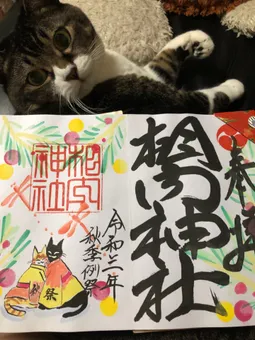 奉拝
相内神社
令和二年
秋季例祭
相内
神社
秋
祭